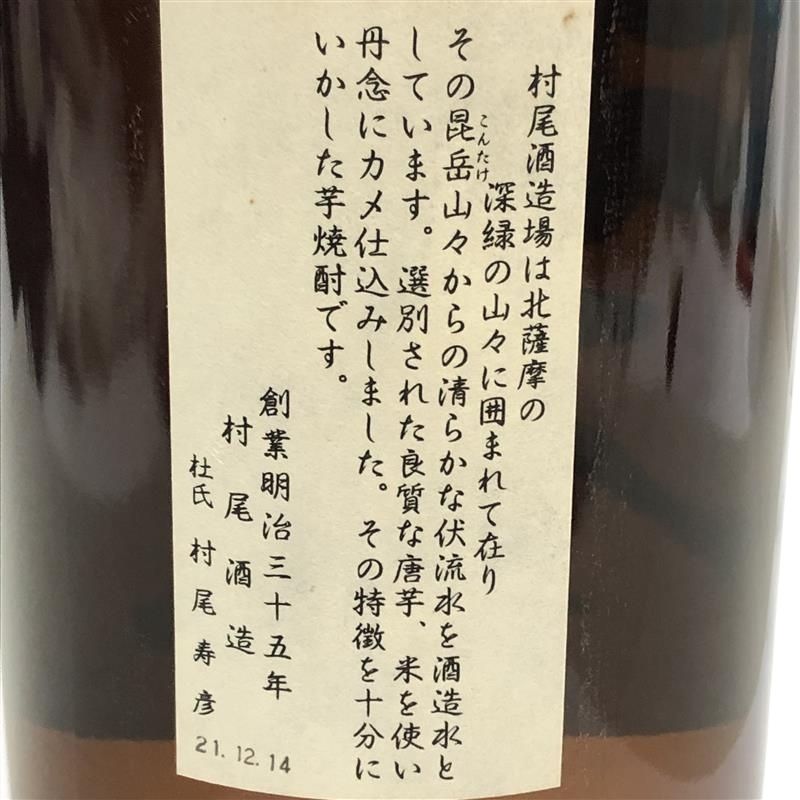 村尾酒造場は北薩摩の
深緑の山々に囲まれて在り
その昆岳山々からの清らかな伏流水を酒造水と
こんたけ
しています。選別された良質な唐芋、米を使い
丹念にカメ仕込みしました。その特徴を十分に
いかした芋焼酎です。
創業明治三十五年
村尾酒造
杜氏 村尾寿彦
21.12.14